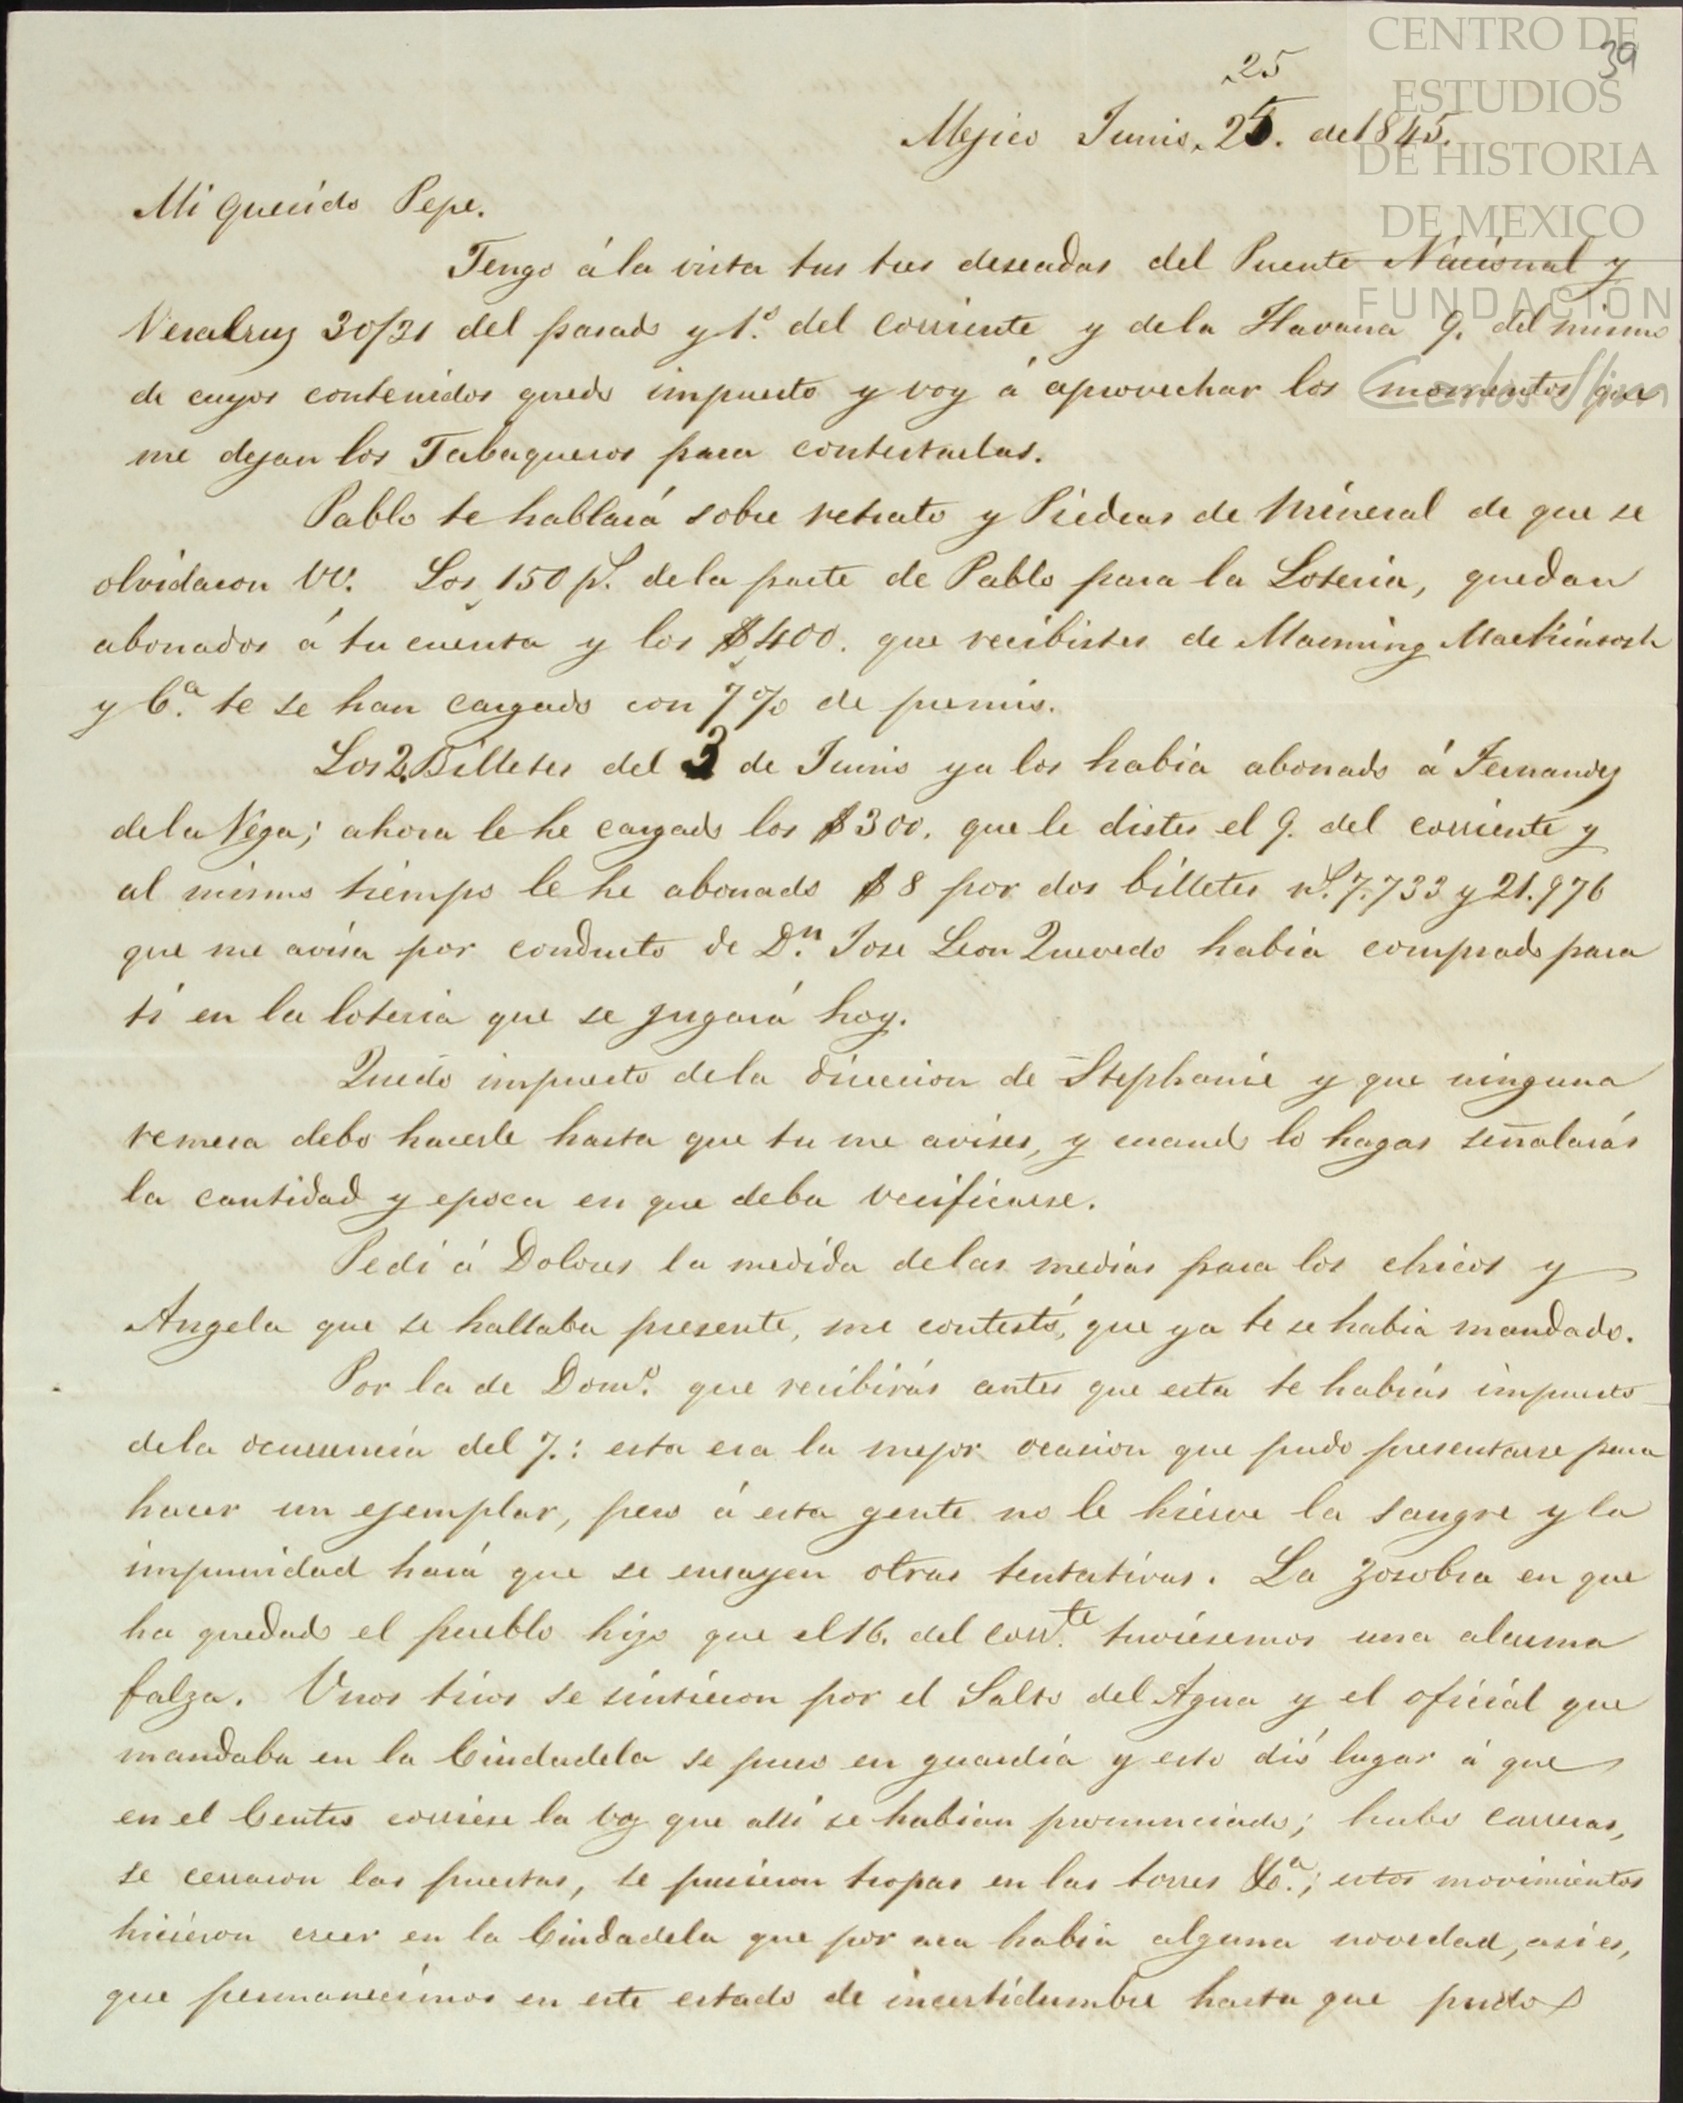 CENTRO DE
ESTUDIOS
DE HISTORIA
DE MEXICO
FUNDACIÓN
Carlos Slim
39
25
Mejico Junio, 25. de 1845.
Mi querido Pepe.
Tengo á la vista tus tres deseadas del Puente Nacional y
Veracruz 30/31 del pasado y 1.º del corriente y de la Havana 9. del mismo
de cuyos contenidos quedo impuesto y voy á aprovechar los momentos que
me dejan los Tabaqueros para contestarlas.
Pablo te hablará sobre retrato y Piedras de Mineral de que se
olvidaron VV. Los 150 p.s de la parte de Pablo para la Loteria, quedan
abonados á tu cuenta y los $400. que recibistes de Manning Mackintosh
y C.a te se han cargado con 7% de premio.
Los 2 Billetes del 3 de Junio ya los habia abonado á Fernandez
de la Vega; ahora le he cargado los $300. que le distes el 9. del corriente y
al mismo tiempo le he abonado $8 por dos billetes n.s 7.733 y 21.976
que me avisa por conducto de D.n Jose Leon Quevedo habia comprado para
ti en la loteria que se jugará hoy.
Quedo impuesto de la direccion de Stephanie y que ninguna
remesa debo hacerle hasta que tu me avises, y cuando lo hagas señalarás
la cantidad y epoca en que deba verificarse.
Pedí á Dolores la medida de las medias para los chicos y
Angela que se hallaba presente, me contestó, que ya te se habia mandado.
Por la de Dom.o que recibirás antes que esta te habrás impuesto
de la ocurrencia del 7.: esta era la mejor ocasion que pudo presentarse para
hacer un ejemplar, pero á esta gente no le hierve la sangre y la
impunidad hará que se ensayen otras tentativas. La zozobra en que
ha quedado el pueblo hizo que el 16. del corr.te tuviesemos una alarma
falza. Unos tiros se sintieron por el Salto del Agua y el oficial que
mandaba en la Ciudadela se puso en guardia y esto dió lugar á que
en el Centro corriese la voz que alli se habian pronunciado; hubo carreras,
se cerraron las puertas, se pusieron tropas en las torres &c.a; estos movimientos
hicieron creer en la Ciudadela que por aca habia alguna novedad, asi es,
que permanecimos en este estado de incertidumbre hasta que pudo